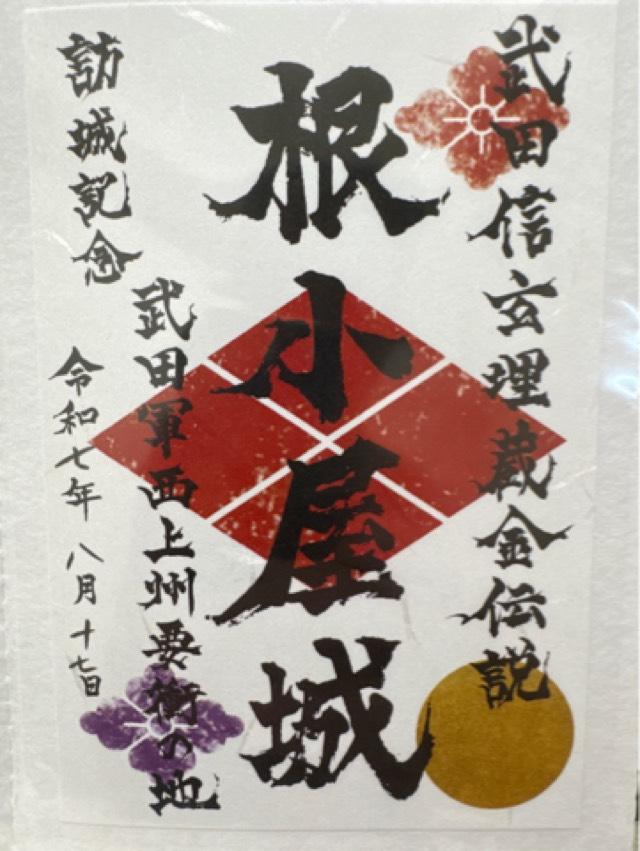 武田信玄埋蔵金伝説
根小屋城
武田軍西上州要衝の地
訪城記念
令和七年 八月十七日